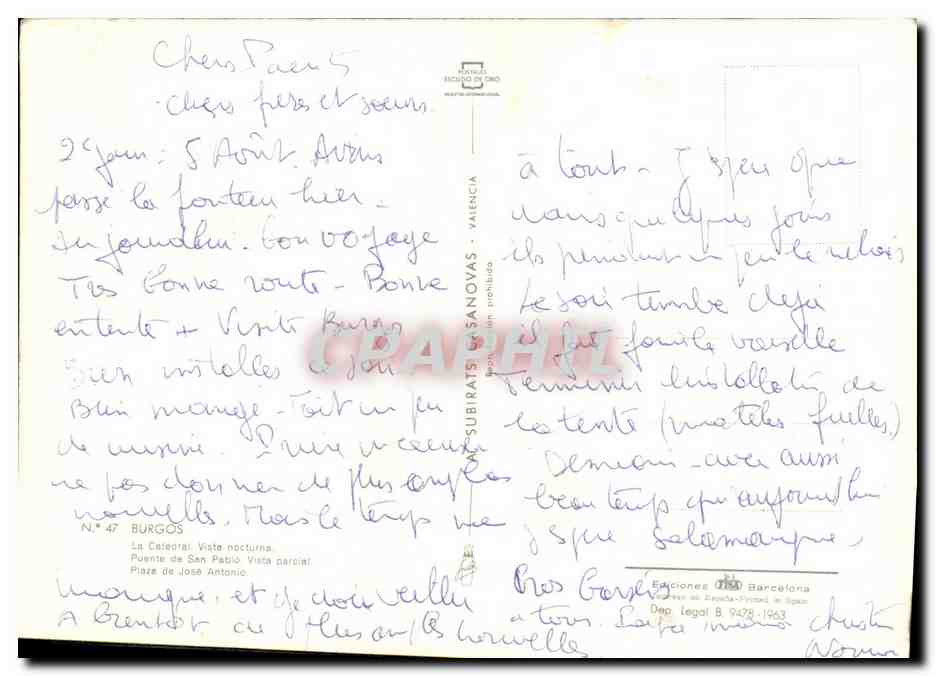 Chers Parents
chers frères et soeurs.
2e jour : 5 Août. Avons
passé la frontière hier.
Aujourd'hui. Bon voyage
Très bonne route - Bonne
entente + Visité Burgos
Bien installés ce soir
Bien mangé - Fait un peu
de musique.
ne pas donner de plus amples
nouvelles. Mais le temps me
manque, et je dois veiller
A bientôt de plus amples nouvelles
à tout - J'espère que
dans quelques jours
ils prendront un peu le relais
Le soir tombe déjà
il faut faire la vaisselle
Terminer l'installation de
la tente (matelas)
Demain - avec aussi
beau temps qu'aujourd'hui
jusque Salamanque.
Gros baisers
à tous. Papa maman Christian
POSTALES
ESCUDO DE ORO
SUBIRATS CASANOVAS - VALENCIA
Reproducción prohibida
CPAPHIL
N.º 47 BURGOS
La Catedral. Vista nocturna.
Puente de San Pablo. Vista parcial.
Plaza de José Antonio.
Ediciones Barcelona
Impreso en España-Printed in Spain
Dep. Legal B. 9478-1963